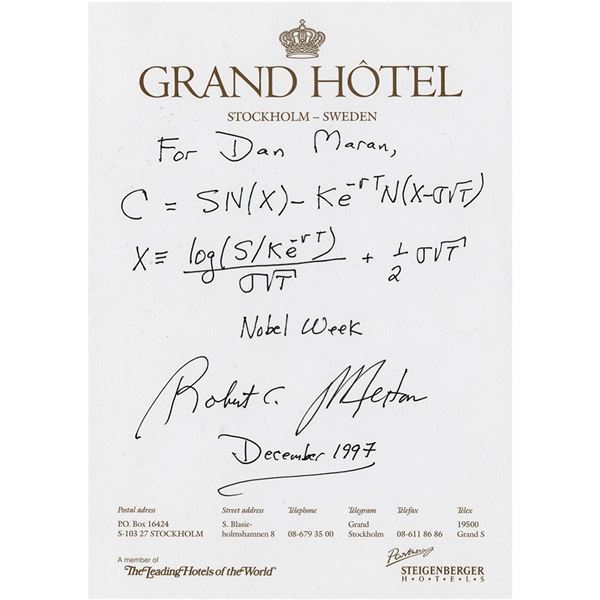 GRAND HÔTEL
STOCKHOLM – SWEDEN
For Dan Maran,
C = SN(X) – Ke^-rT N(X-σ√T)
X ≡ log(S/Ke^-rT) / σ√T + 1/2 σ√T
Nobel Week
Robert C. Merton
December 1997
Postal adress Street address Telephone Telegram Telefax Telex
P.O. Box 16424 S. Blasie- Grand 19500
S-103 27 STOCKHOLM holmshamnen 8 08-679 35 00 Stockholm 08-611 86 86 Grand S
A member of
The Leading Hotels of the World®
Partner
STEIGENBERGER
HOTELS